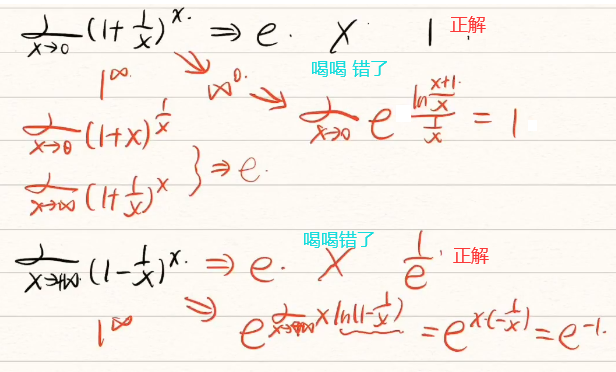 lim x→0 (1+1/x)^x. ⇒ e. X 1 正解
1^∞ ∞^0. 喝喝 错了
lim x→0 (1+x)^(1/x) lim x→0 e^(ln((x+1)/x)/(1/x)) = 1
lim x→∞ (1+1/x)^x } ⇒ e.
喝喝错了
lim x→+∞ (1-1/x)^x. ⇒ e. X 1/e 正解
1^∞ ⇒ e^(lim x→+∞ x ln(1-1/x)) = e^(x·(-1/x)) = e^(-1).